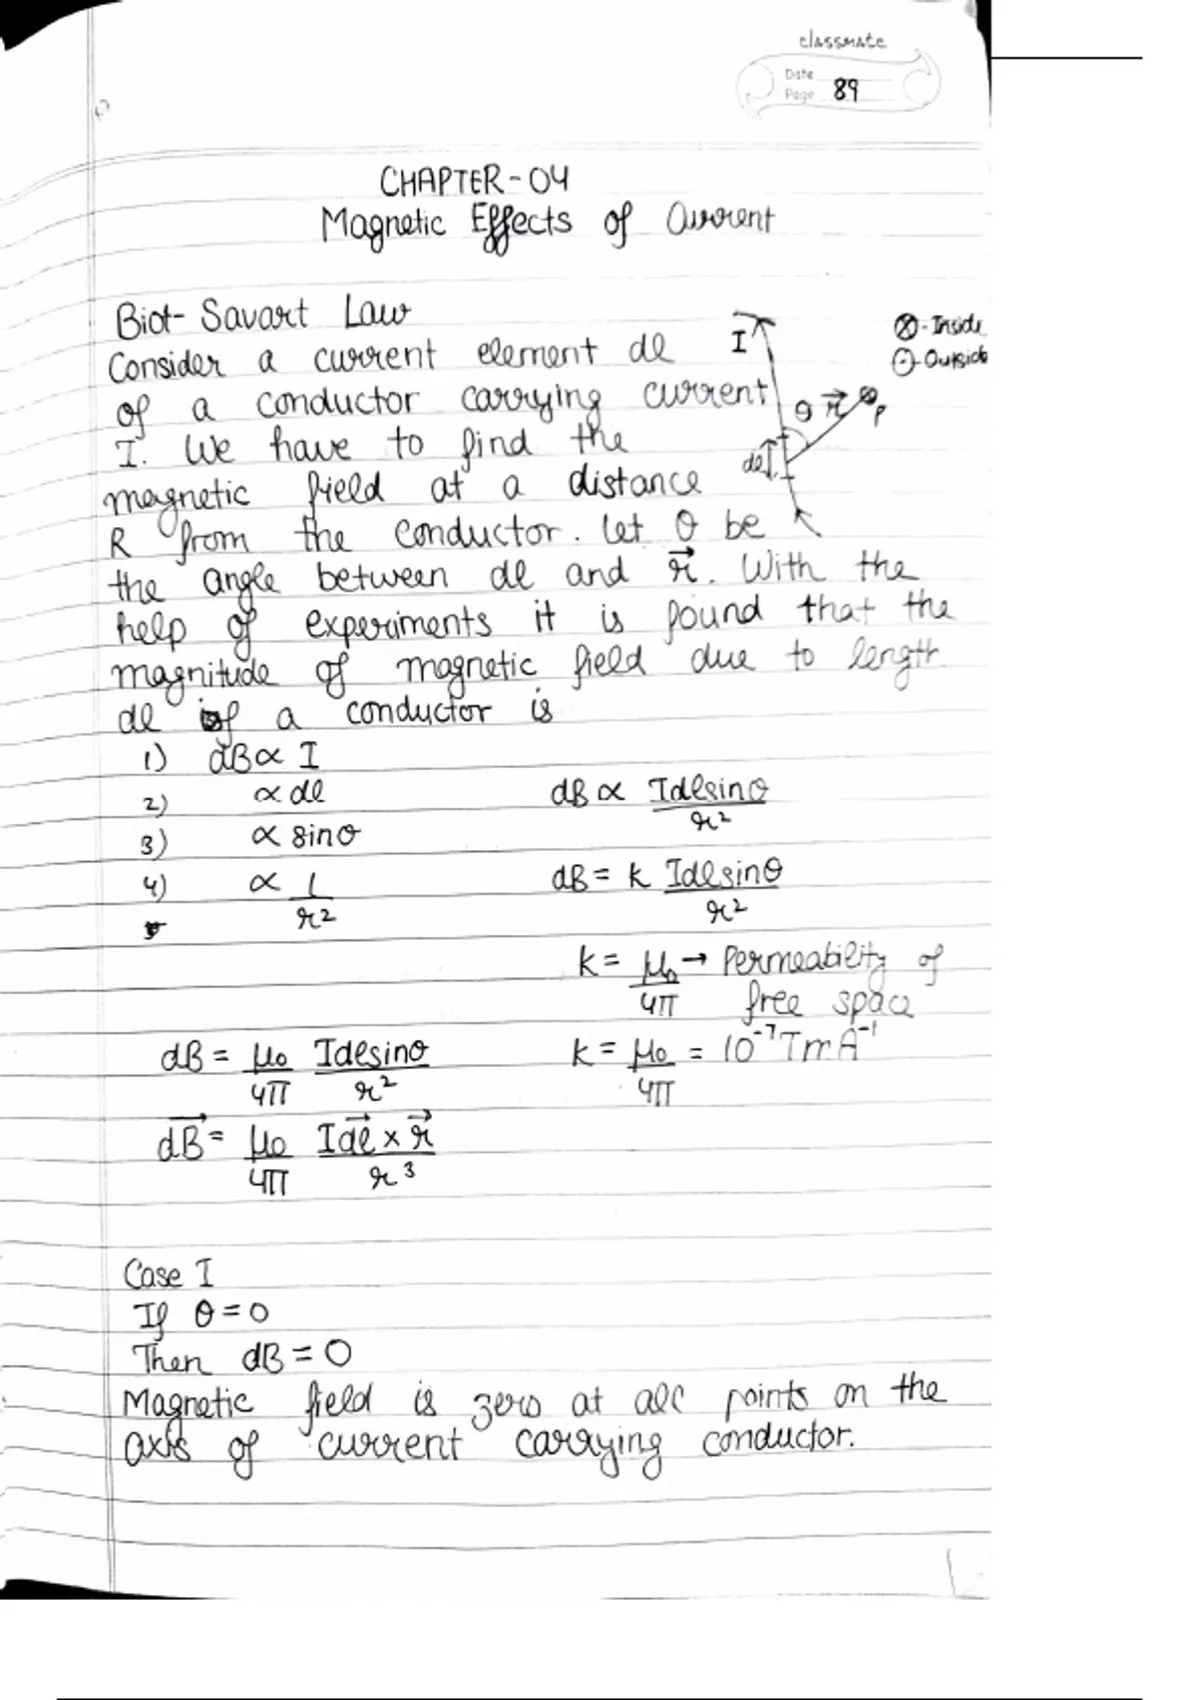 classmate
Date
Page 89
CHAPTER-04
Magnetic Effects of Current
Biot-Savart Law
Consider a current element dl
of a conductor carrying current
I. We have to find the
magnetic field at a distance
R from the conductor. let θ be
the angle between dl and r⃗. With the
help of experiments it is found that the
magnitude of magnetic field due to length
dl of a conductor is
I
⊗ - Inside
⊙ - Outside
θ r⃗ P
dl
1) dB ∝ I
2) ∝ dl
dB ∝ Idlsinθ / r²
3) ∝ sinθ
4) ∝ 1/r²
dB = k Idlsinθ / r²
k = μ₀/4π → Permeability of
free space
dB = μ₀/4π Idlsinθ / r²
k = μ₀/4π = 10⁻⁷ TmA⁻¹
dB⃗ = μ₀/4π Idl⃗ × r⃗ / r³
Case I
If θ = 0
Then dB = 0
Magnetic field is zero at all points on the
axis of current carrying conductor.